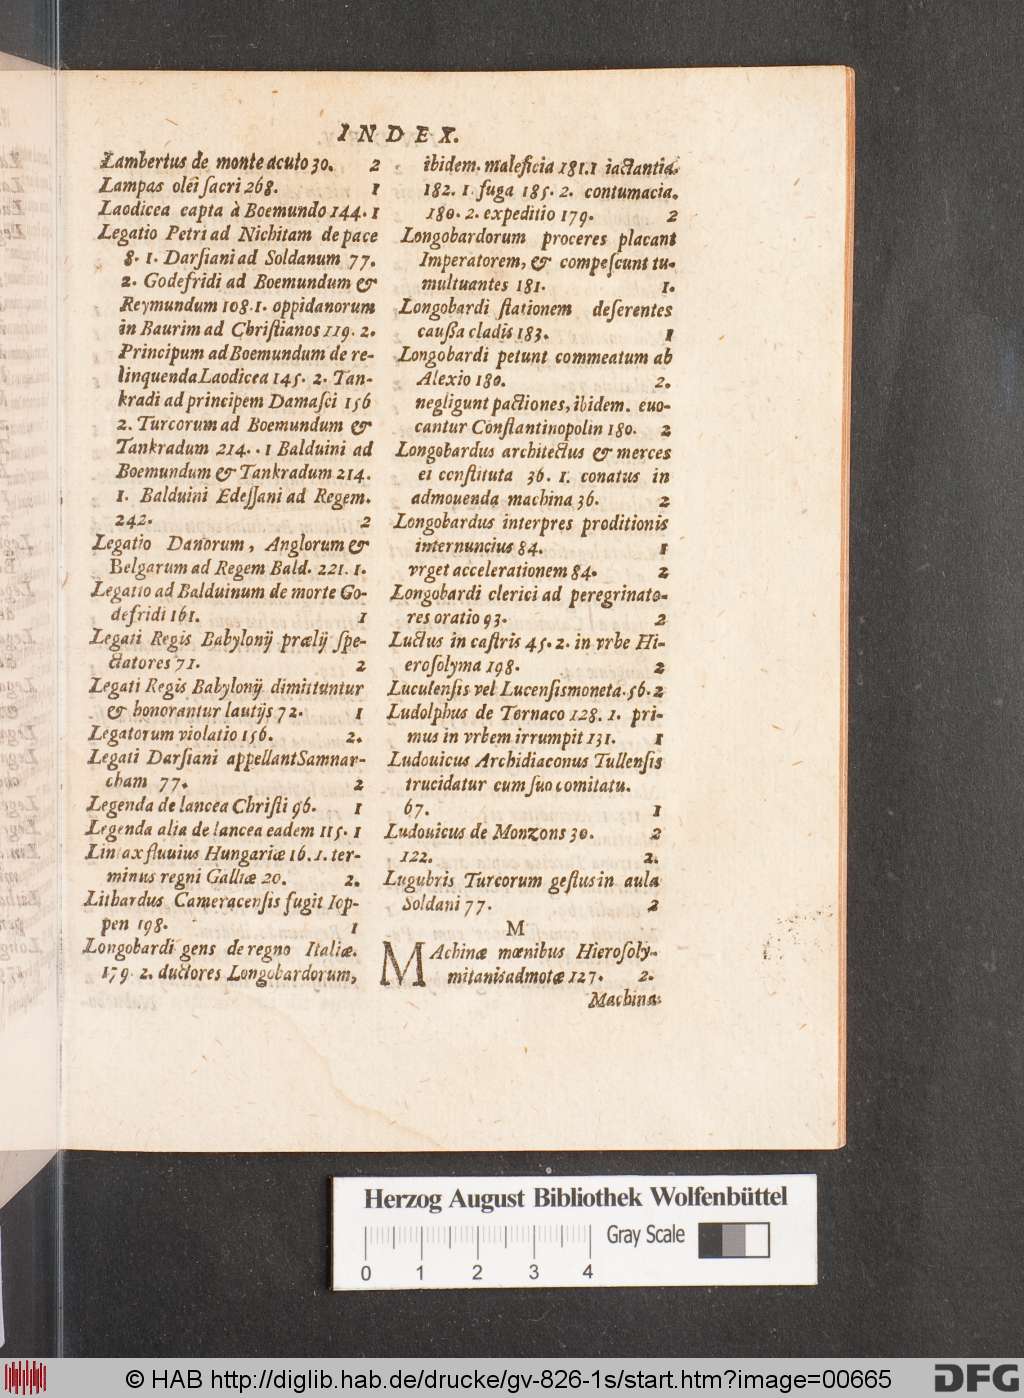 INDEX.
Lambertus de monte acuto 30. 2
Lampas olei sacri 268. 1
Laodicea capta à Boemundo 144. 1
Legatio Petri ad Nichitam de pace
8. 1. Darsiani ad Soldanum 77.
2. Godefridi ad Boemundum &
Reymundum 108. 1. oppidanorum
in Baurim ad Christianos 119. 2.
Principum ad Boemundum de re-
linquenda Laodicea 145. 2. Tan-
kradi ad principem Damasci 156
2. Turcorum ad Boemundum &
Tankradum 214. . 1 Balduini ad
Boemundum & Tankradum 214.
1. Balduini Edessani ad Regem.
242. 2
Legatio Danorum, Anglorum &
Belgarum ad Regem Bald. 221. 1.
Legatio ad Balduinum de morte Go-
defridi 161. 1
Legati Regis Babylonij prælij spe-
ctatores 71. 2
Legati Regis Babylonij dimittuntur
& honorantur lautijs 72. 1
Legatorum violatio 156. 2.
Legati Darsiani appellant Samnar-
cham 77. 2
Legenda de lancea Christi 96. 1
Legenda alia de lancea eadem 115. 1
Lintax fluuius Hungariæ 16. 1. ter-
minus regni Galliæ 20. 2.
Lithardus Cameracensis fugit Iop-
pen 198. 1
Longobardi gens de regno Italiæ.
179. 2. ductores Longobardorum,
ibidem. maleficia 181. 1 iactantia.
182. 1. fuga 185. 2. contumacia.
180. 2. expeditio 179. 2
Longobardorum proceres placant
Imperatorem, & compescunt tu-
multuantes 181. 1.
Longobardi stationem deserentes
caußa cladis 183. 1
Longobardi petunt commeatum ab
Alexio 180. 2.
negligunt pactiones, ibidem. euo-
cantur Constantinopolin 180. 2
Longobardus architectus & merces
ei constituta 36. 1. conatus in
admouenda machina 36. 2
Longobardus interpres proditionis
internuncius 84. 1
vrget accelerationem 84. 2
Longobardi clerici ad peregrinato-
res oratio 93. 2
Luctus in castris 45. 2. in vrbe Hi-
erosolyma 198. 2
Luculensis vel Lucensis moneta. 56. 2
Ludolphus de Tornaco 128. 1. pri-
mus in vrbem irrumpit 131. 1
Ludouicus Archidiaconus Tullensis
trucidatur cum suo comitatu.
67. 1
Ludouicus de Monzons 30. 2
122. 2.
Lugubris Turcorum gestus in aula
Soldani 77. 2
M
MAchinæ mœnibus Hierosoly-
mitanis admotæ 127. 2.
Machina
Herzog August Bibliothek Wolfenbüttel
Gray Scale
0 1 2 3 4
© HAB http://diglib.hab.de/drucke/gv-826-1s/start.htm?image=00665
DFG